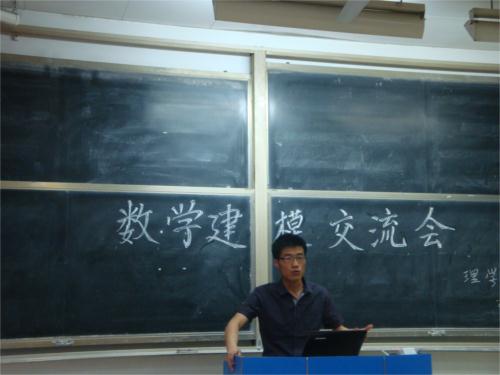 数学建模交流会
理学